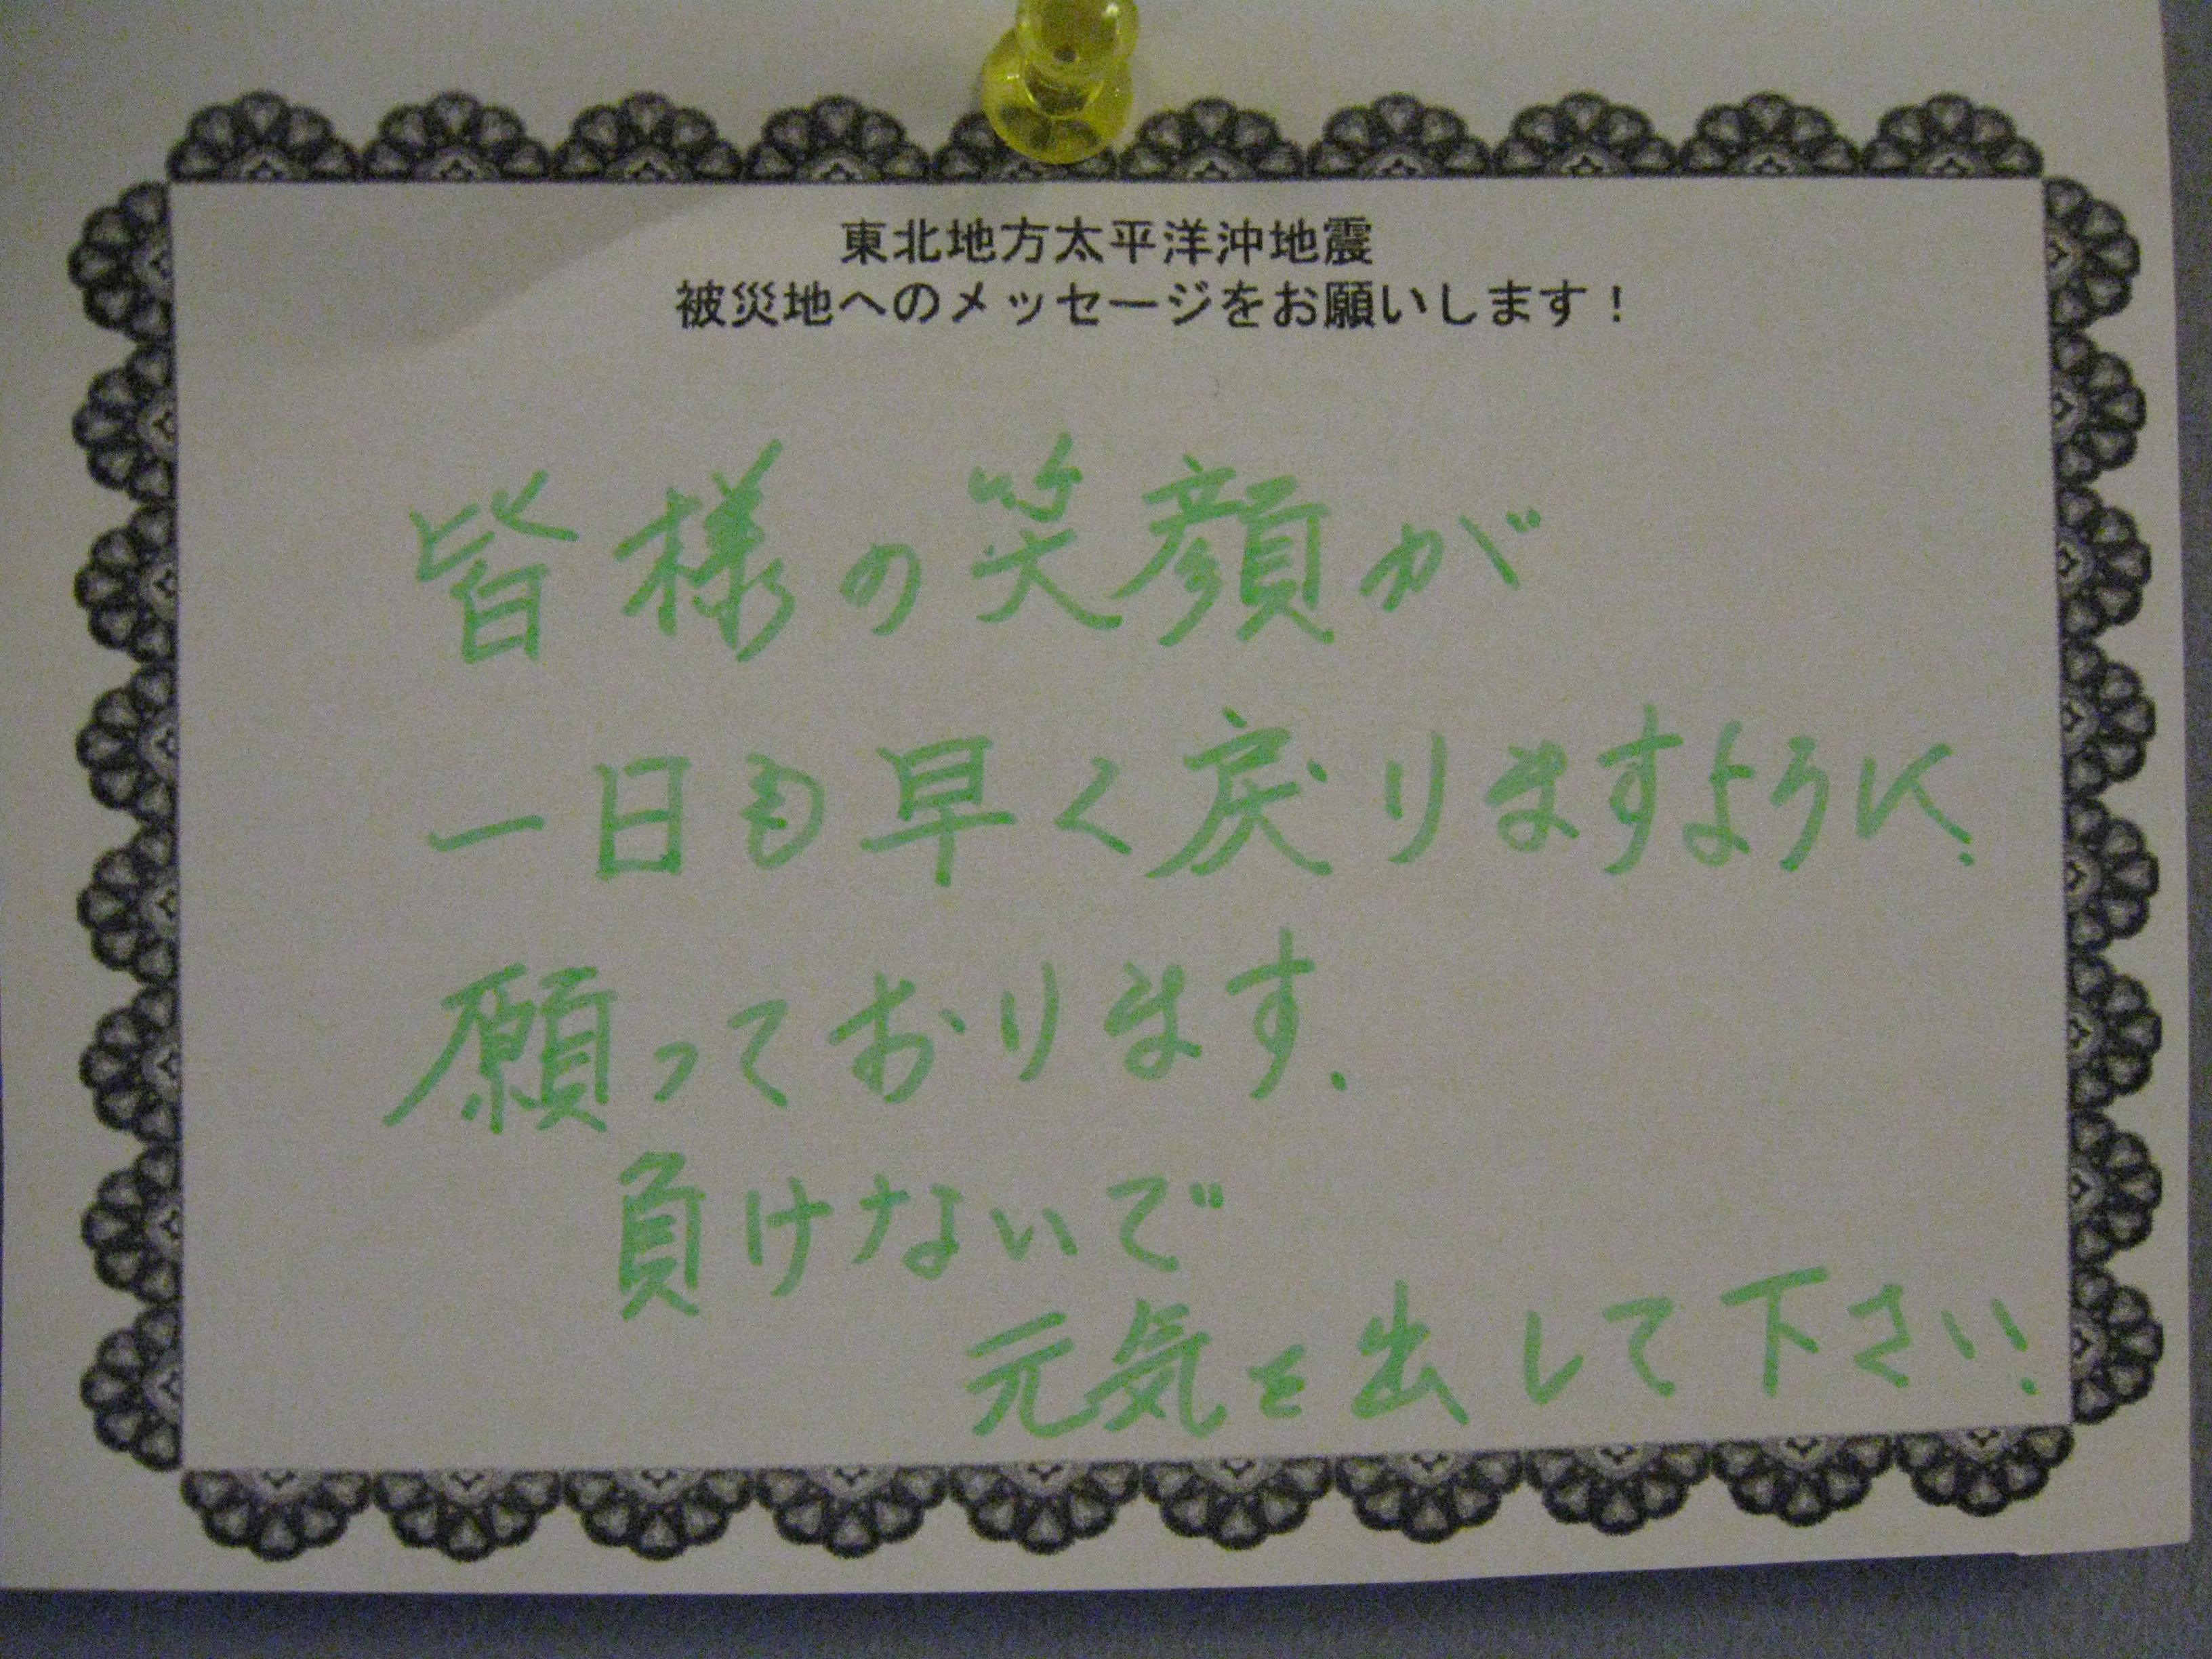 東北地方太平洋沖地震
被災地へのメッセージをお願いします！
皆様の笑顔が
一日も早く戻りますように.
願っております.
負けないで
元気を出して下さい.